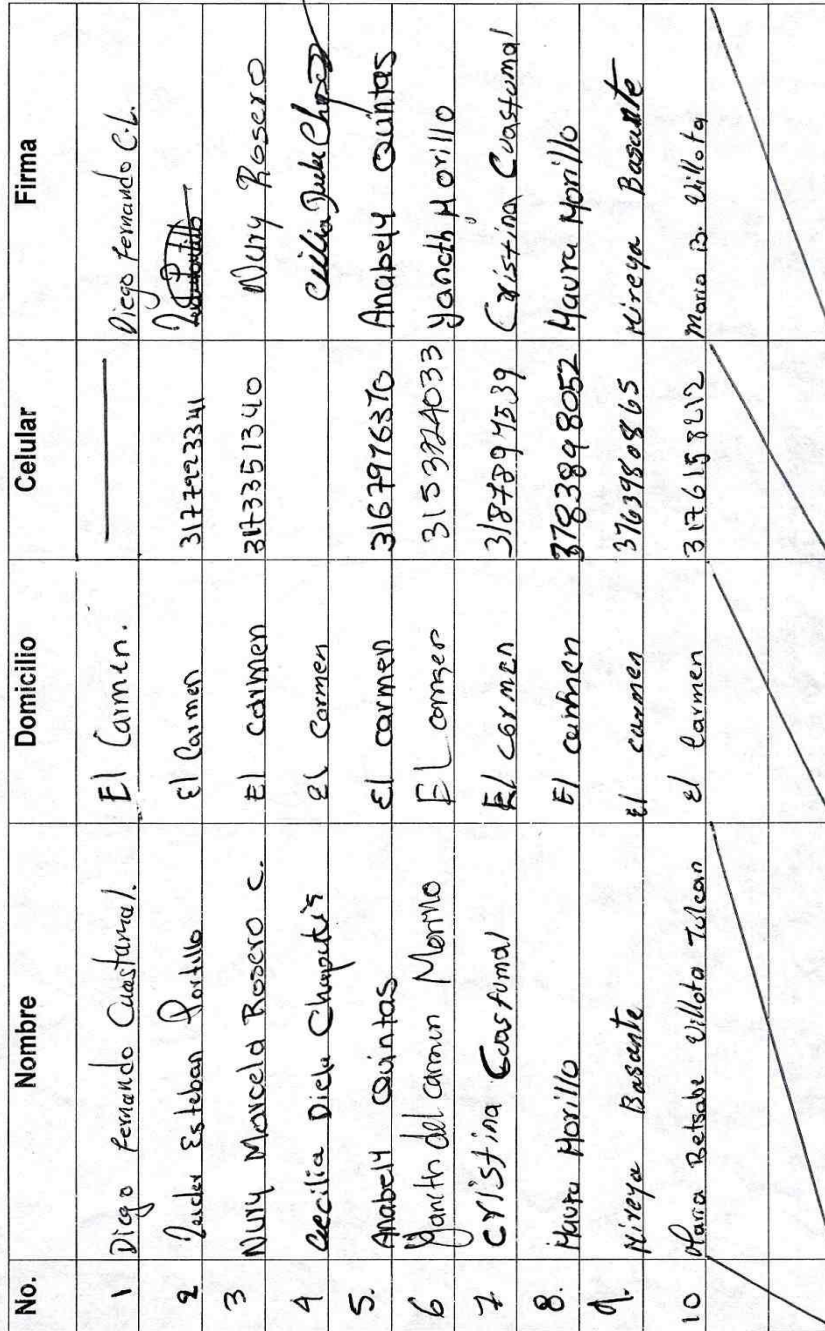 No. Nombre Domicilio Celular Firma
1 Diego Fernando Cuastumal. El Carmen. Diego Fernando C.L.
2 Esteban Portillo El Carmen 3177923341
3 Nury Marcela Rosero C. El carmen 3173351340 Nury Rosero
4 Cecilia El carmen Cecilia
5. Anabely Quintas El carmen 3167976376 Anabely Quintas
6 Yaneth del carmen Morillo El carmen Yaneth Morillo
7 Cristina Coastumal El carmen 3187897539 Cristina Cuastumal
8. Maura Morillo El carmen Maura Morillo
9. Mireya Basante El carmen 3163980865 Mireya Basante
10 Maria Betsabe Villota Tulcan El Carmen 3176158212 Maria B. Villota